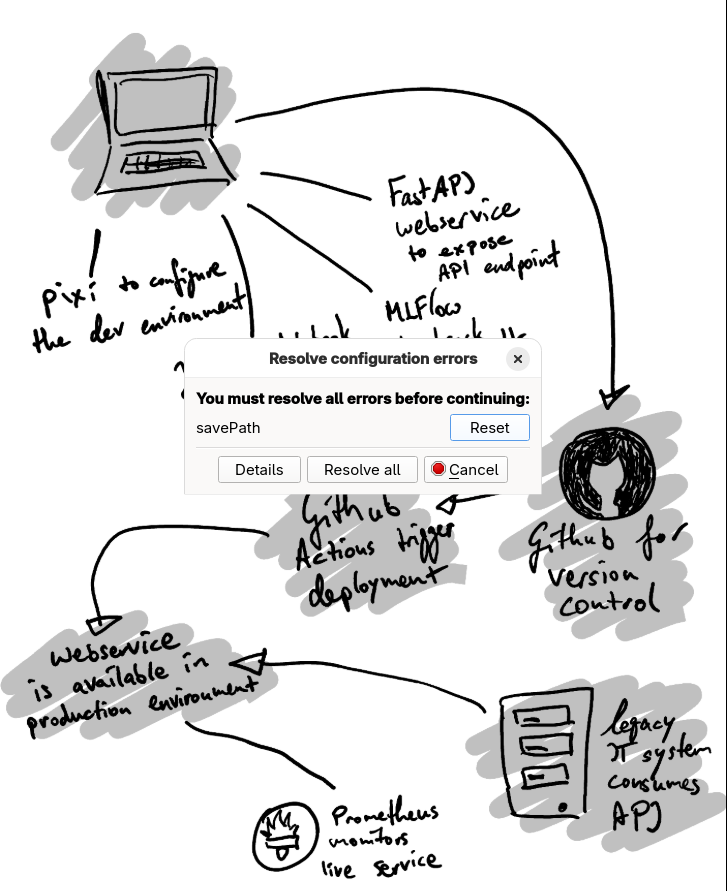 FastAPI
webservice
to expose
API endpoint
pixi to configure
the dev environment
MLFlow
Resolve configuration errors
You must resolve all errors before continuing:
savePath
Reset
Details
Resolve all
Cancel
Github
Actions trigger
deployment
Github for
version
control
webservice
is available in
production environment
legacy
IT system
consumes
API
Prometheus
monitors
live service